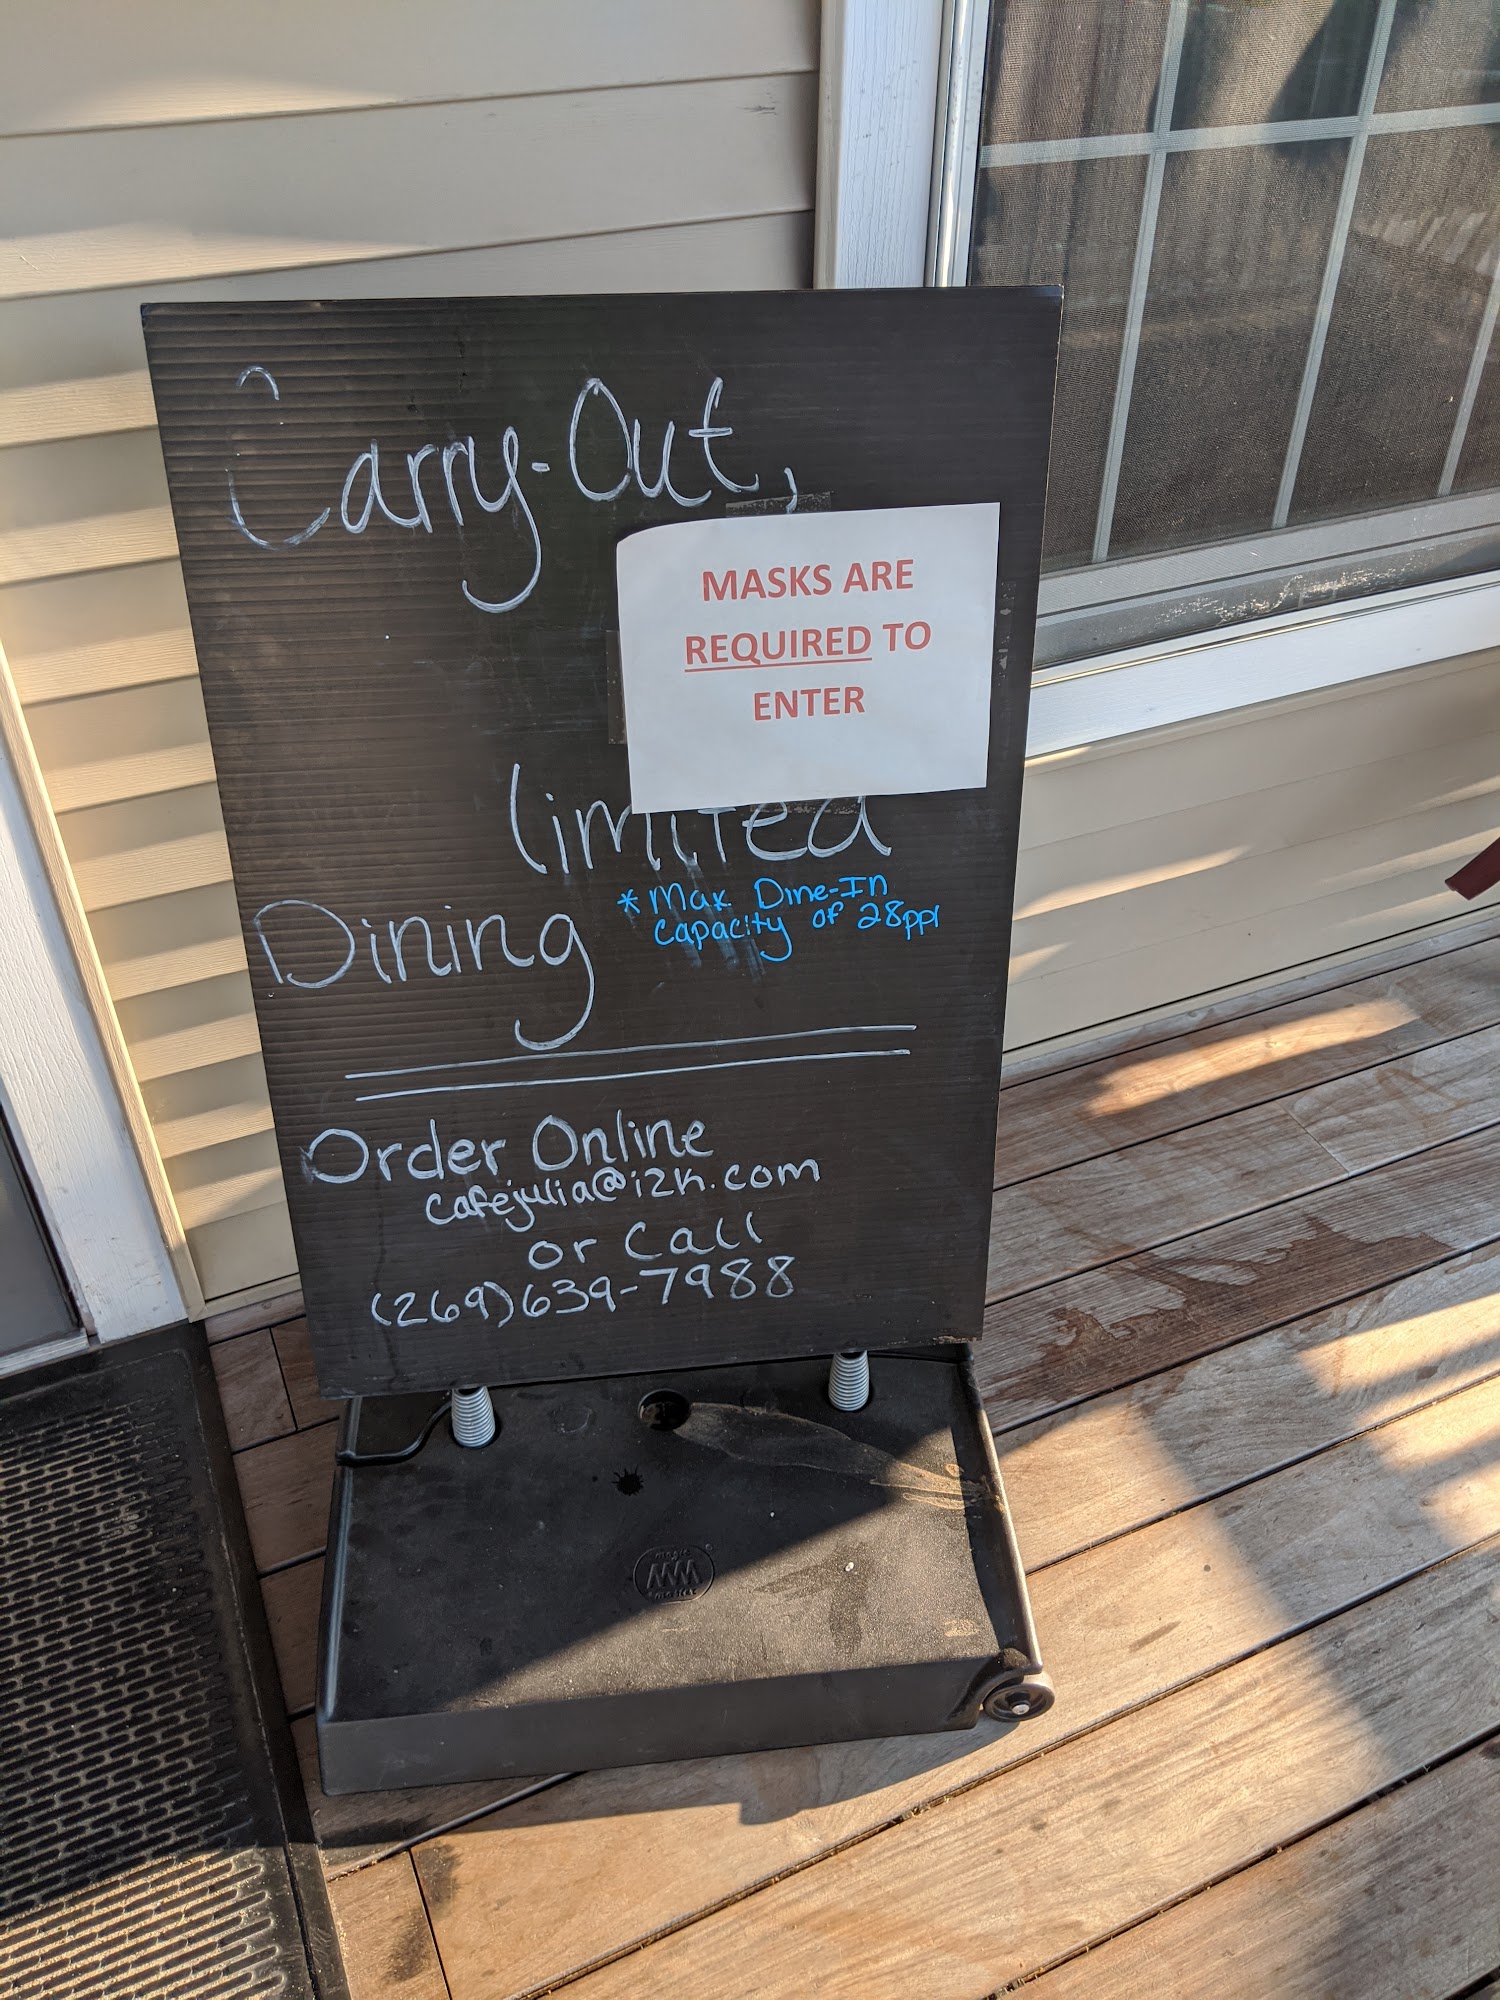 Carry-Out,
MASKS ARE
REQUIRED TO
ENTER
limited
Dining
* Max Dine-In
capacity of 28ppl
Order Online
cafejulia@i2k.com
or Call
(269)639-7988